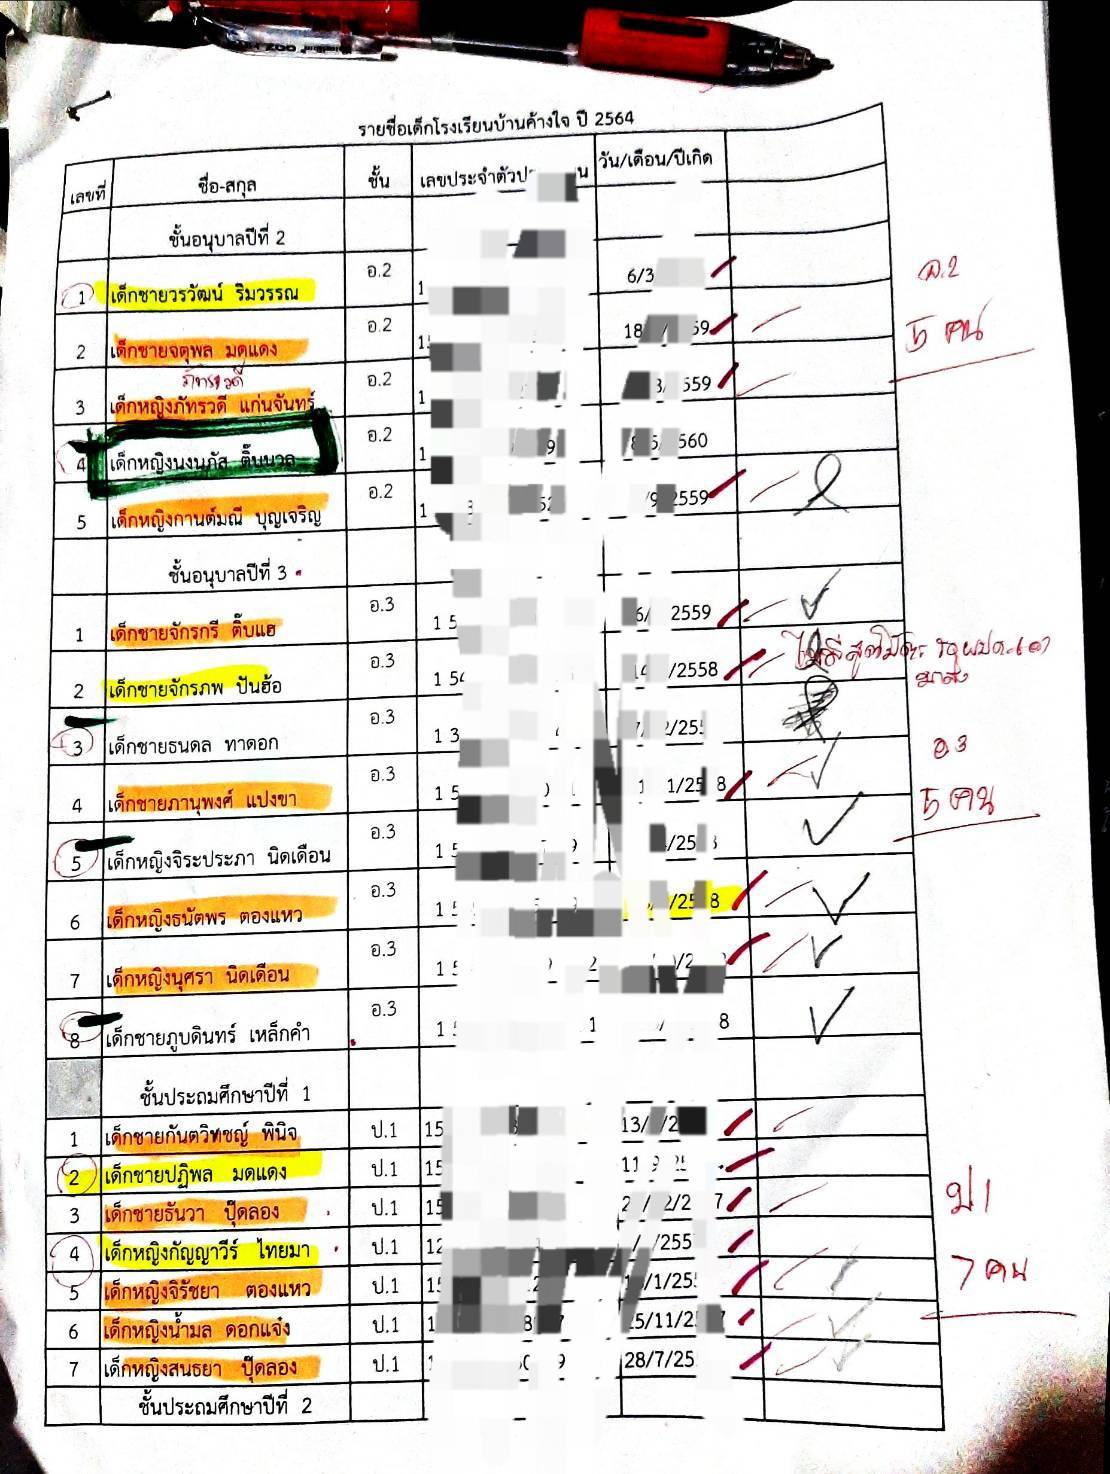 รายชื่อเด็กโรงเรียนบ้านค้างใจ ปี 2564
เลขที่ ชื่อ-สกุล ชั้น เลขประจำตัวป น วัน/เดือน/ปีเกิด
ชั้นอนุบาลปีที่ 2
1 เด็กชายวรวัฒน์ ริมวรรณ อ.2 1 6/3
อ.2
2 เด็กชายจตุพล มดแดง อ.2 15 18 59
5 คน
ภัทรวดี
3 เด็กหญิงภัทรวดี แก่นจันทร์ อ.2 1 3/ 559
4 เด็กหญิงนงนภัส ติ๊บนวล อ.2 1 9 8 5 560
5 เด็กหญิงกานต์มณี บุญเจริญ อ.2 1 3 52 /9 2559
ชั้นอนุบาลปีที่ 3
1 เด็กชายจักรกรี ติ๊บแฮ อ.3 1 5 6/ 2559
2 เด็กชายจักรภพ ปันฮ้อ อ.3 1 54 14 /2558
3 เด็กชายธนดล ทาดอก อ.3 1 3 7/ 2/255
อ.3
4 เด็กชายภานุพงศ์ แปงขา อ.3 1 5 1 1/25 8
5 คน
5 เด็กหญิงจิระประภา นิดเดือน อ.3 1 5 9 /25
6 เด็กหญิงธนัตพร ตองแหว อ.3 1 5 /25 8
7 เด็กหญิงนุศรา นิดเดือน อ.3 1 5 2 /2
8 เด็กชายภูบดินทร์ เหล็กคำ อ.3 1 5 1 / 8
ชั้นประถมศึกษาปีที่ 1
1 เด็กชายกันตวิทชญ์ พินิจ ป.1 15 13/ /2
2 เด็กชายปฏิพล มดแดง ป.1 15 11 9 25
ป1
3 เด็กชายธันวา ปุ๊ดลอง ป.1 15 2 / 2/2 7
4 เด็กหญิงกัญญาวีร์ ไทยมา ป.1 12 / /255
7 คน
5 เด็กหญิงจิรัชยา ตองแหว ป.1 15 2 1 /1/25
6 เด็กหญิงน้ำมล ดอกแจ๋ง ป.1 1 8 7 5/11/2 7
7 เด็กหญิงสนธยา ปุ๊ดลอง ป.1 1 0 9 28/7/25
ชั้นประถมศึกษาปีที่ 2